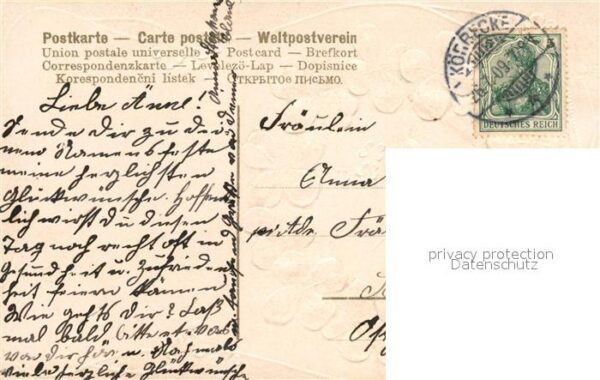 Postkarte — Carte postale — Weltpostverein
Union postale universelle — Postcard — Brefkort
Correspondenzkarte — Levelező-Lap — Dopisnice
Korespondenční lístek — ОТКРЫТОЕ ПИСЬМО.
KÖRBECKE
DEUTSCHES REICH
5
Liebe Änne!
Sende Dir zu Dei-
nem Namensfeste
meine herzlichsten
Glückwünsche. Hoffent-
lich wirst du diesen
Tag noch recht oft in
Gesundheit u. Zufrieden-
heit feiern können
Wie gehts dir? Laß
mal bald bitte etwas
von dir hören u. Nochmals
viele herzliche Glückwünsche
u. tausend Grüße von deine
Fräulein
Anna
Frä
privacy protection
Datenschutz